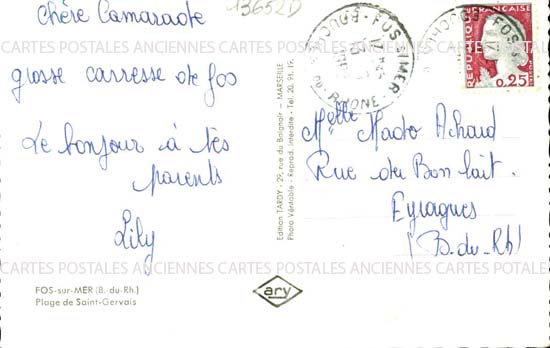 13652D
Chère Camarade
grosse carresse de fos
Le bonjour à tes
parents
Lily
FOS-sur-MER (B.-du-Rh.)
Plage de Saint-Gervais
Edition TARDY - 29, rue du Baignoir - MARSEILLE
Photo Véritable - Reprod. Interdite - Tel 20.91.19.
ary
FOS-S-MER
BOUCHES DU RHONE
FRANÇAISE
0,25
Melle Mado Achard
Rue du Bon lait.
Eyragues
(B.du.Rh)
CARTES POSTALES ANCIENNES CARTES POSTALES ANCIENNES CARTES POSTALES
CARTES POSTALES ANCIENNES CARTES POSTALES ANCIENNES CARTES POTALES